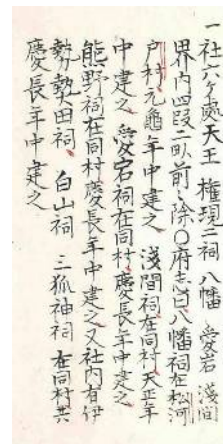 一社六ケ處天王 権現二祠 八幡 愛宕 淺間
界内四段二畝前々除〇府志曰八幡祠在松河
戸村元亀年中建之 淺間祠在同村天正年
中建之 愛宕祠在同村慶長年中建之
熊野祠在同村慶長年中建之又社内有伊
勢熱田祠 白山祠 三狐神祠 在同村共
慶長年中建之